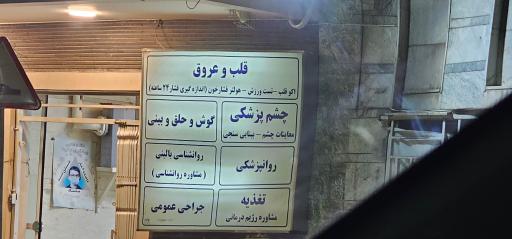 قلب و عروق
اکو قلب - تست ورزش - هولتر فشارخون (اندازه گیری فشار ۲۴ ساعته)
چشم پزشکی
معاینات چشم - بینایی سنجی
گوش و حلق و بینی
روانپزشکی
روانشناسی بالینی
(مشاوره روانشناسی)
تغذیه
مشاوره رژیم درمانی
جراحی عمومی